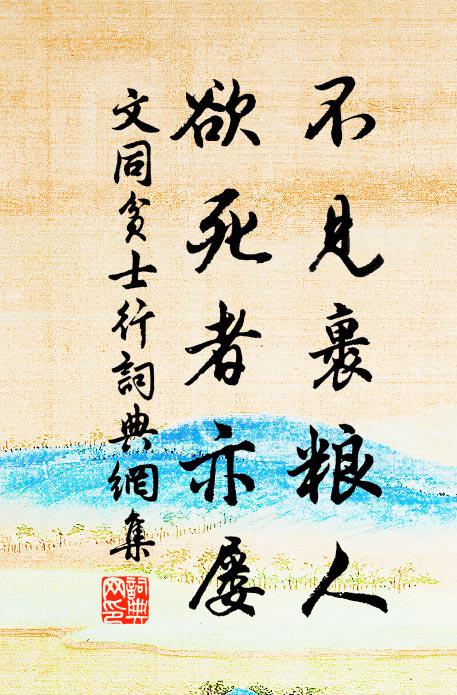 不见裹粮人
欲死者亦屡
文同贫士行詞典網集
詞典
网印